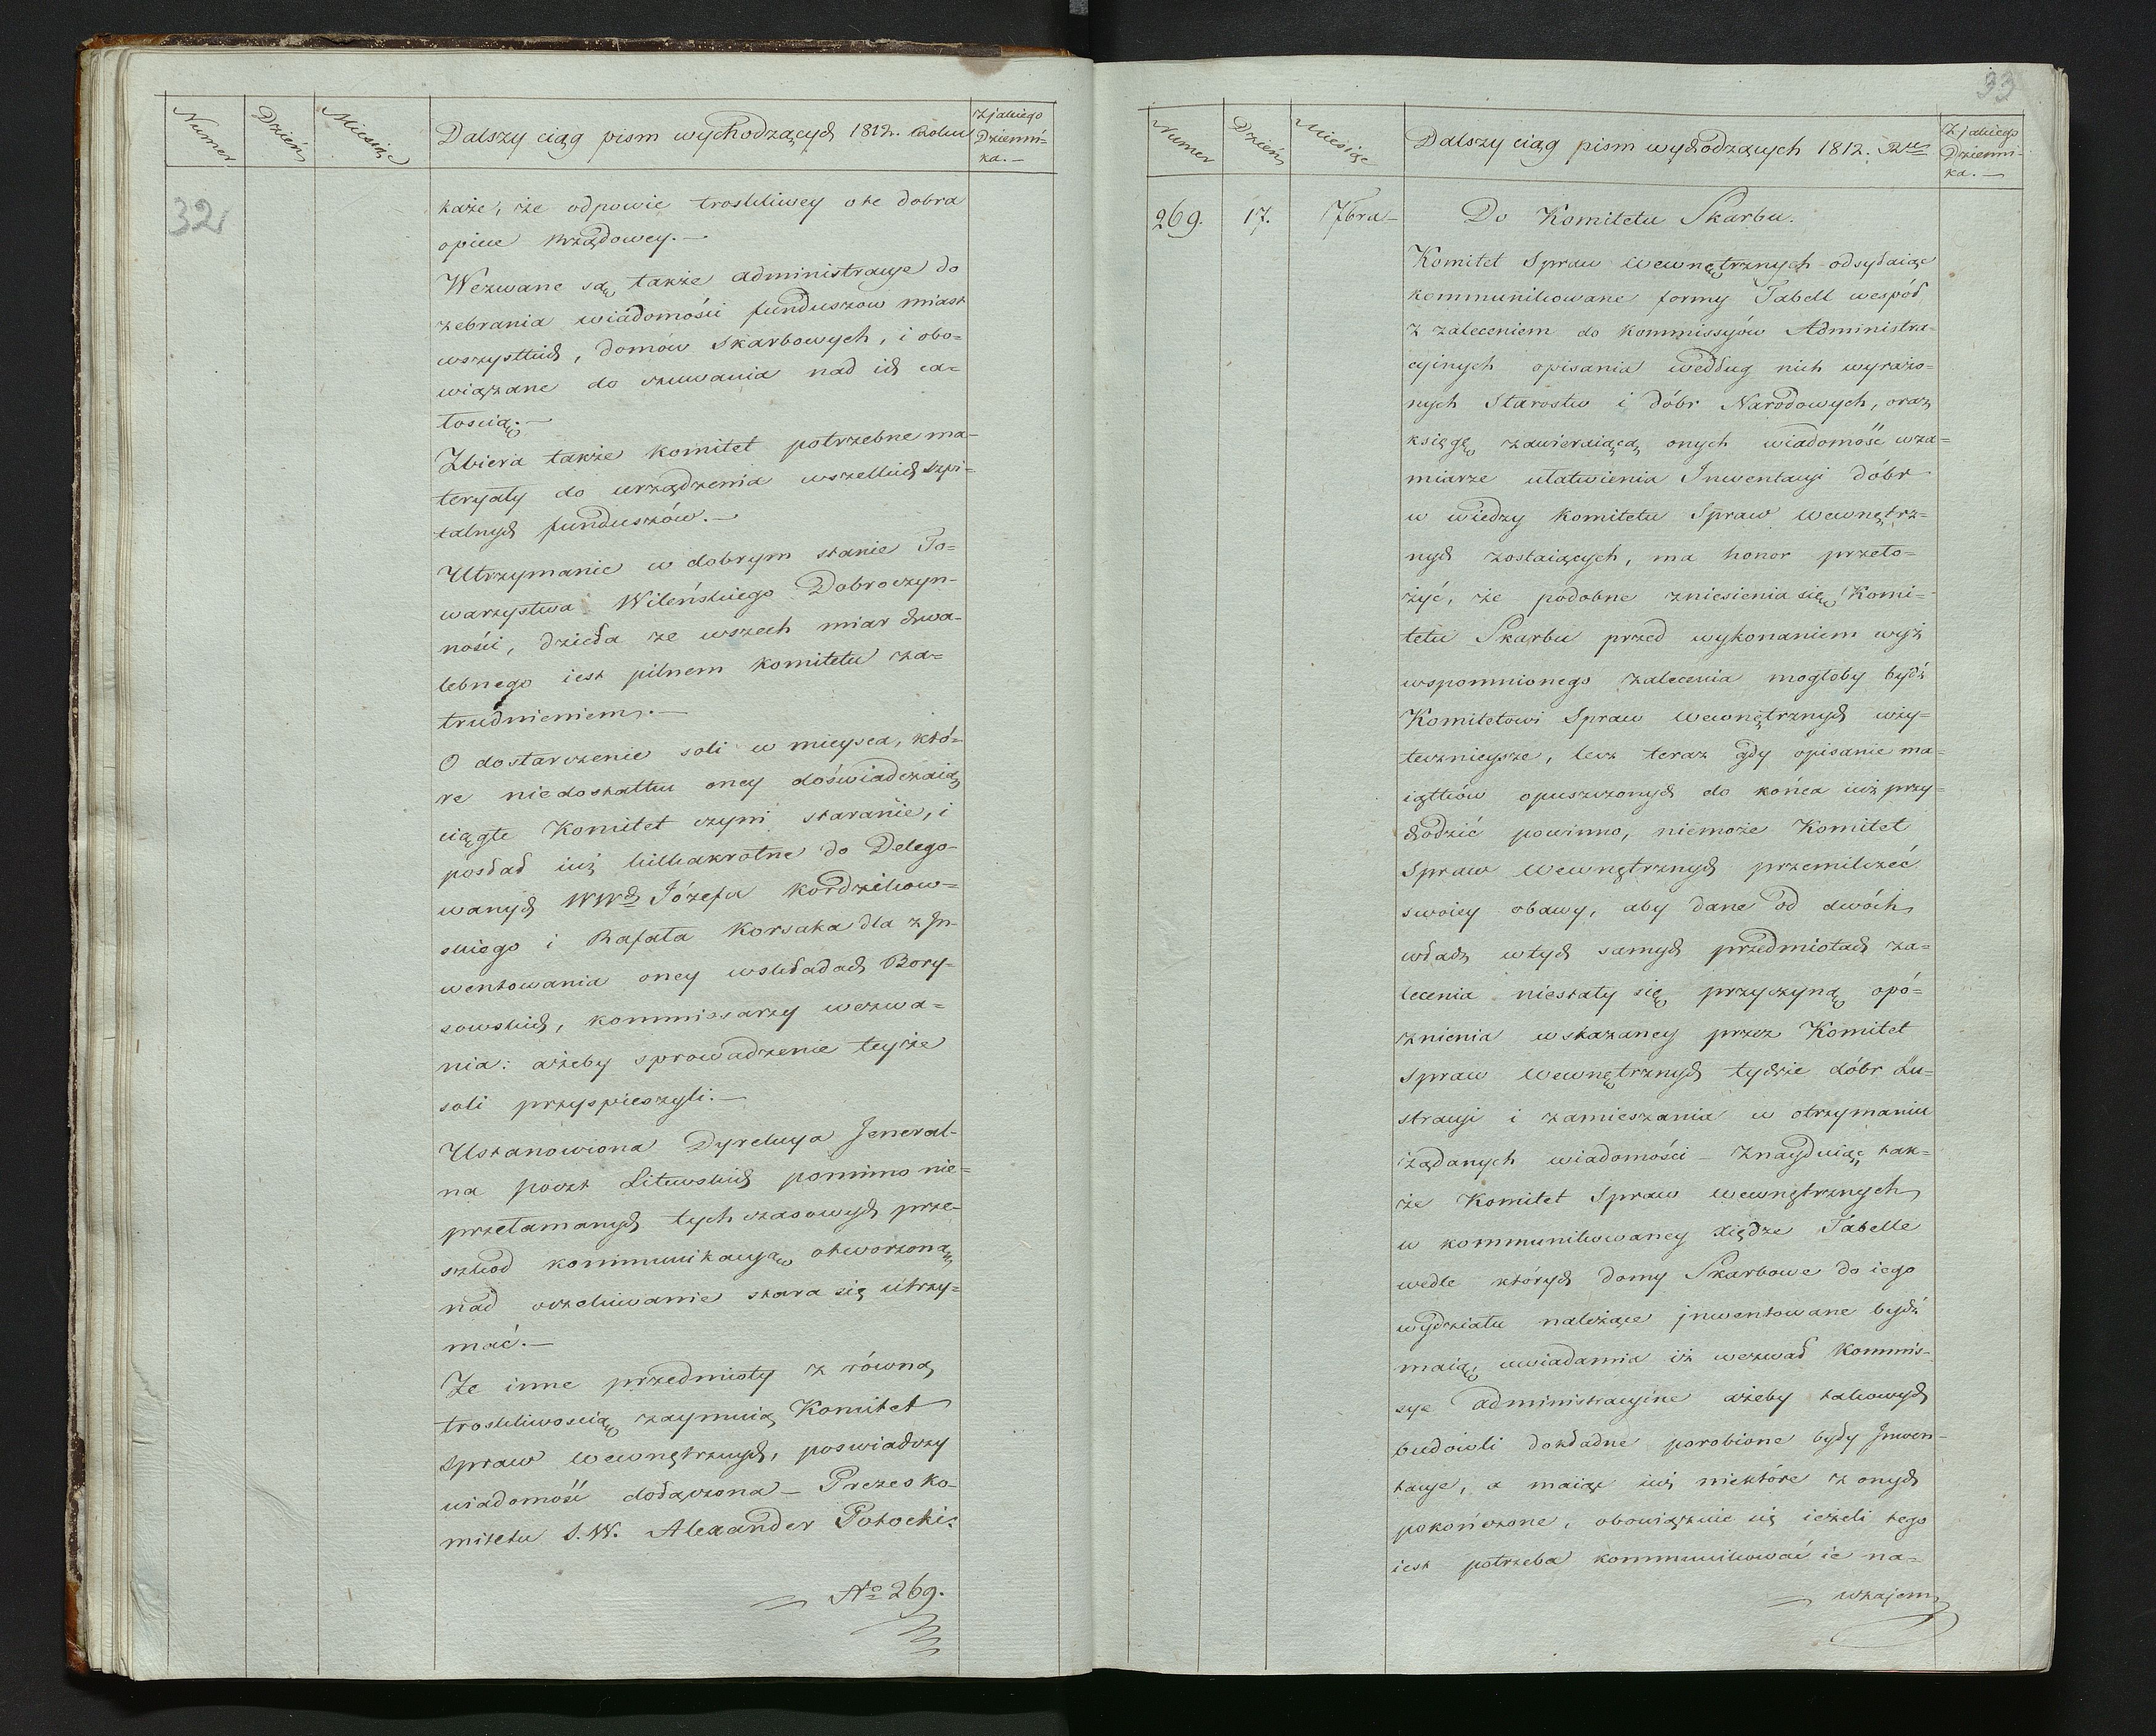 Numer
Dzień
Miesiąc
Dalszy ciąg pism wychodzących 1812. Roku
Z jakiego
Dzienni-
ka.-
32
każe, że odpowie troskliwey o te dobra
opiece Rządowey.-
Wezwane są także administracye do
zebrania wiadomości funduszow miast
wszystkich, domów Skarbowych, i obo=
wiązane do czuwania nad ich ca=
łoscią.-
Zbiera także Komitet potrzebne ma-
teryały do urządzenia wszelkich szpi-
talnych funduszów.-
Utrzymanie w dobrym stanie To-
warzystwa Wileńskiego Dobroczyn-
ności, dzieła ze wszech miar chwa-
lebnego iest pilnem Komitetu za-
trudnieniem.-
O dostarczenie soli w mieysca, któ-
re niedostatku oney doświadczaią
ciągłe Komitet czyni staranie, i
posłał iuż kilkakrotne do Delego-
wanych WWch Józefa Kordzikow=
skiego i Rafała Korsaka dla z In-
wentowania oney w składach Bory-
sowskich, kommissarzy wezwa=
nia: ażeby sprowadzenie teyże
soli przyspieszyli.-
Ustanowiona Dyrekcya Jeneral-
na poczt Litewskich pomimo nie=
przełamanych tychczasowych prze-
szkod kommunikacyą otworzoną
nad oczekiwanie stara się utrzy=
mać.-
Że inne przedmioty z równą
troskliwoscią zaymuią Komitet
Spraw Wewnętrznych, poswiadczy
wiadomość dołączona - Prezes Ko-
mitetu S.W. Alexander Potocki.
No 269.
33
Numer
Dzień
Miesiąc
Dalszy ciąg pism wychodzących 1812. Rku
Z jakiego
Dzienni-
ka.-
269. 17. 7bra- Do Komitetu Skarbu.
Komitet Spraw Wewnętrznych odsyłaiąc
kommunikowane formy Tabell wespół
z zaleceniem do Kommissyów Administra-
cyinych opisania według nich wyrażo=
nych Starostw i dóbr Narodowych, oraz
księgę zawieraiącą onych wiadomość w za=
miarze ułatwienia Inwentacyi dóbr
w wiedzy Komitetu Spraw Wewnętrz=
nych zostaiących, ma honor przeło=
żyć, że podobne zniesienia się Komi=
tetu Skarbu przed wykonaniem wyż
wspomnionego zalecenia mogłoby bydź
Komitetowi Spraw Wewnętrznych uży=
tecznieysze, lecz teraz gdy opisanie ma=
iątków opuszczonych do końca iuż przy=
chodzić powinno, niemoże Komitet
Spraw Wewnętrznych przemilczeć
swoiey obawy, aby dane od dwóch
władz w tych samych przedmiotach za=
lecenia niestały się przyczyną opó=
znienia wskazaney przez Komitet
Spraw Wewnętrznych tychże dóbr Lu=
stracyi i zamieszania w otrzymaniu
żądanych wiadomości - Znayduiąc tak=
że Komitet Spraw Wewnętrznych
w kommunikowaney xiędze Tabelle
wedle których domy Skarbowe do iego
wydziału należące inwentowane bydź
maią, uwiadamia iż wezwał Kommis-
sye administracyine ażeby takowych
budowli dokładne porobione były Inwen-
tacye, a maiąc iuż niektóre z onych
pokończone, obowiązuie się ieżeli tego
iest potrzeba kommunikować ie na=
wzajem